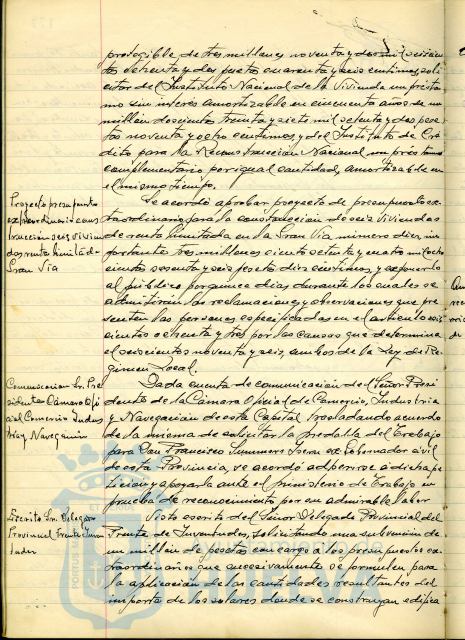 protegible de tres millones noventa y dos mil seiscien
tas setenta y dos pesetas cuarenta y seis centimos, soli
citar del Instituto Nacional de la Vivienda un présta
mo sin interes amortizable en cincuenta años de un
millón doscientas treinta y siete mil setenta y dos pese
tas noventa y ocho centimos, y del Instituto de Cré
dito para la Reconstrucción Nacional un préstamo
complementario por igual cantidad, amortizable en
el mismo tiempo.
Proyecto presupuesto
extraordinario cons
trucción seis vivien
das renta limitada
Gran Vía
Se acordó aprobar proyecto de presupuesto ex
traordinario para la construcción de seis viviendas
de renta limitada en la Gran Via número diez, im
portante tres millones ciento setenta y cuatro mil ocho
cientas sesenta y seis pesetas diez centimos, y exponerlo
al público por quince dias durante los cuales se
admitirán las reclamaciones y observaciones que pre
senten las personas especificadas en el articulo seis
cientos ochenta y tres por las causas que determina
el seiscientos noventa y seis, ambos de la Ley de Ré
gimen Local.
Comunicacion Sr. Pre
sidente Cámara Ofi
cial Comercio Indus
tria y Navegación
Dada cuenta de comunicación del Señor Presi
dente de la Cámara Oficial de Comercio, Industria
y Navegación de esta Capital trasladando acuerdo
de la misma de solicitar la medalla del Trabajo
para Don Francisco Summers Isern ex Gobernador civil
de esta Provincia, se acordó adherirse a dicha pe
tición y apoyarla ante el ministerio de Trabajo en
prueba de reconocimiento por su admirable labor
Escrito Sr. Delegado
Provincial Frente Juven
tudes
Visto escrito del Señor Delegado Provincial del
Frente de Juventudes, solicitando una subvención de
un millón de pesetas con cargo a los presupuestos ex
traordinarios que sucesivamente se formulen para
la aplicación de las cantidades resultantes del
importe de los solares donde se construyan edifica